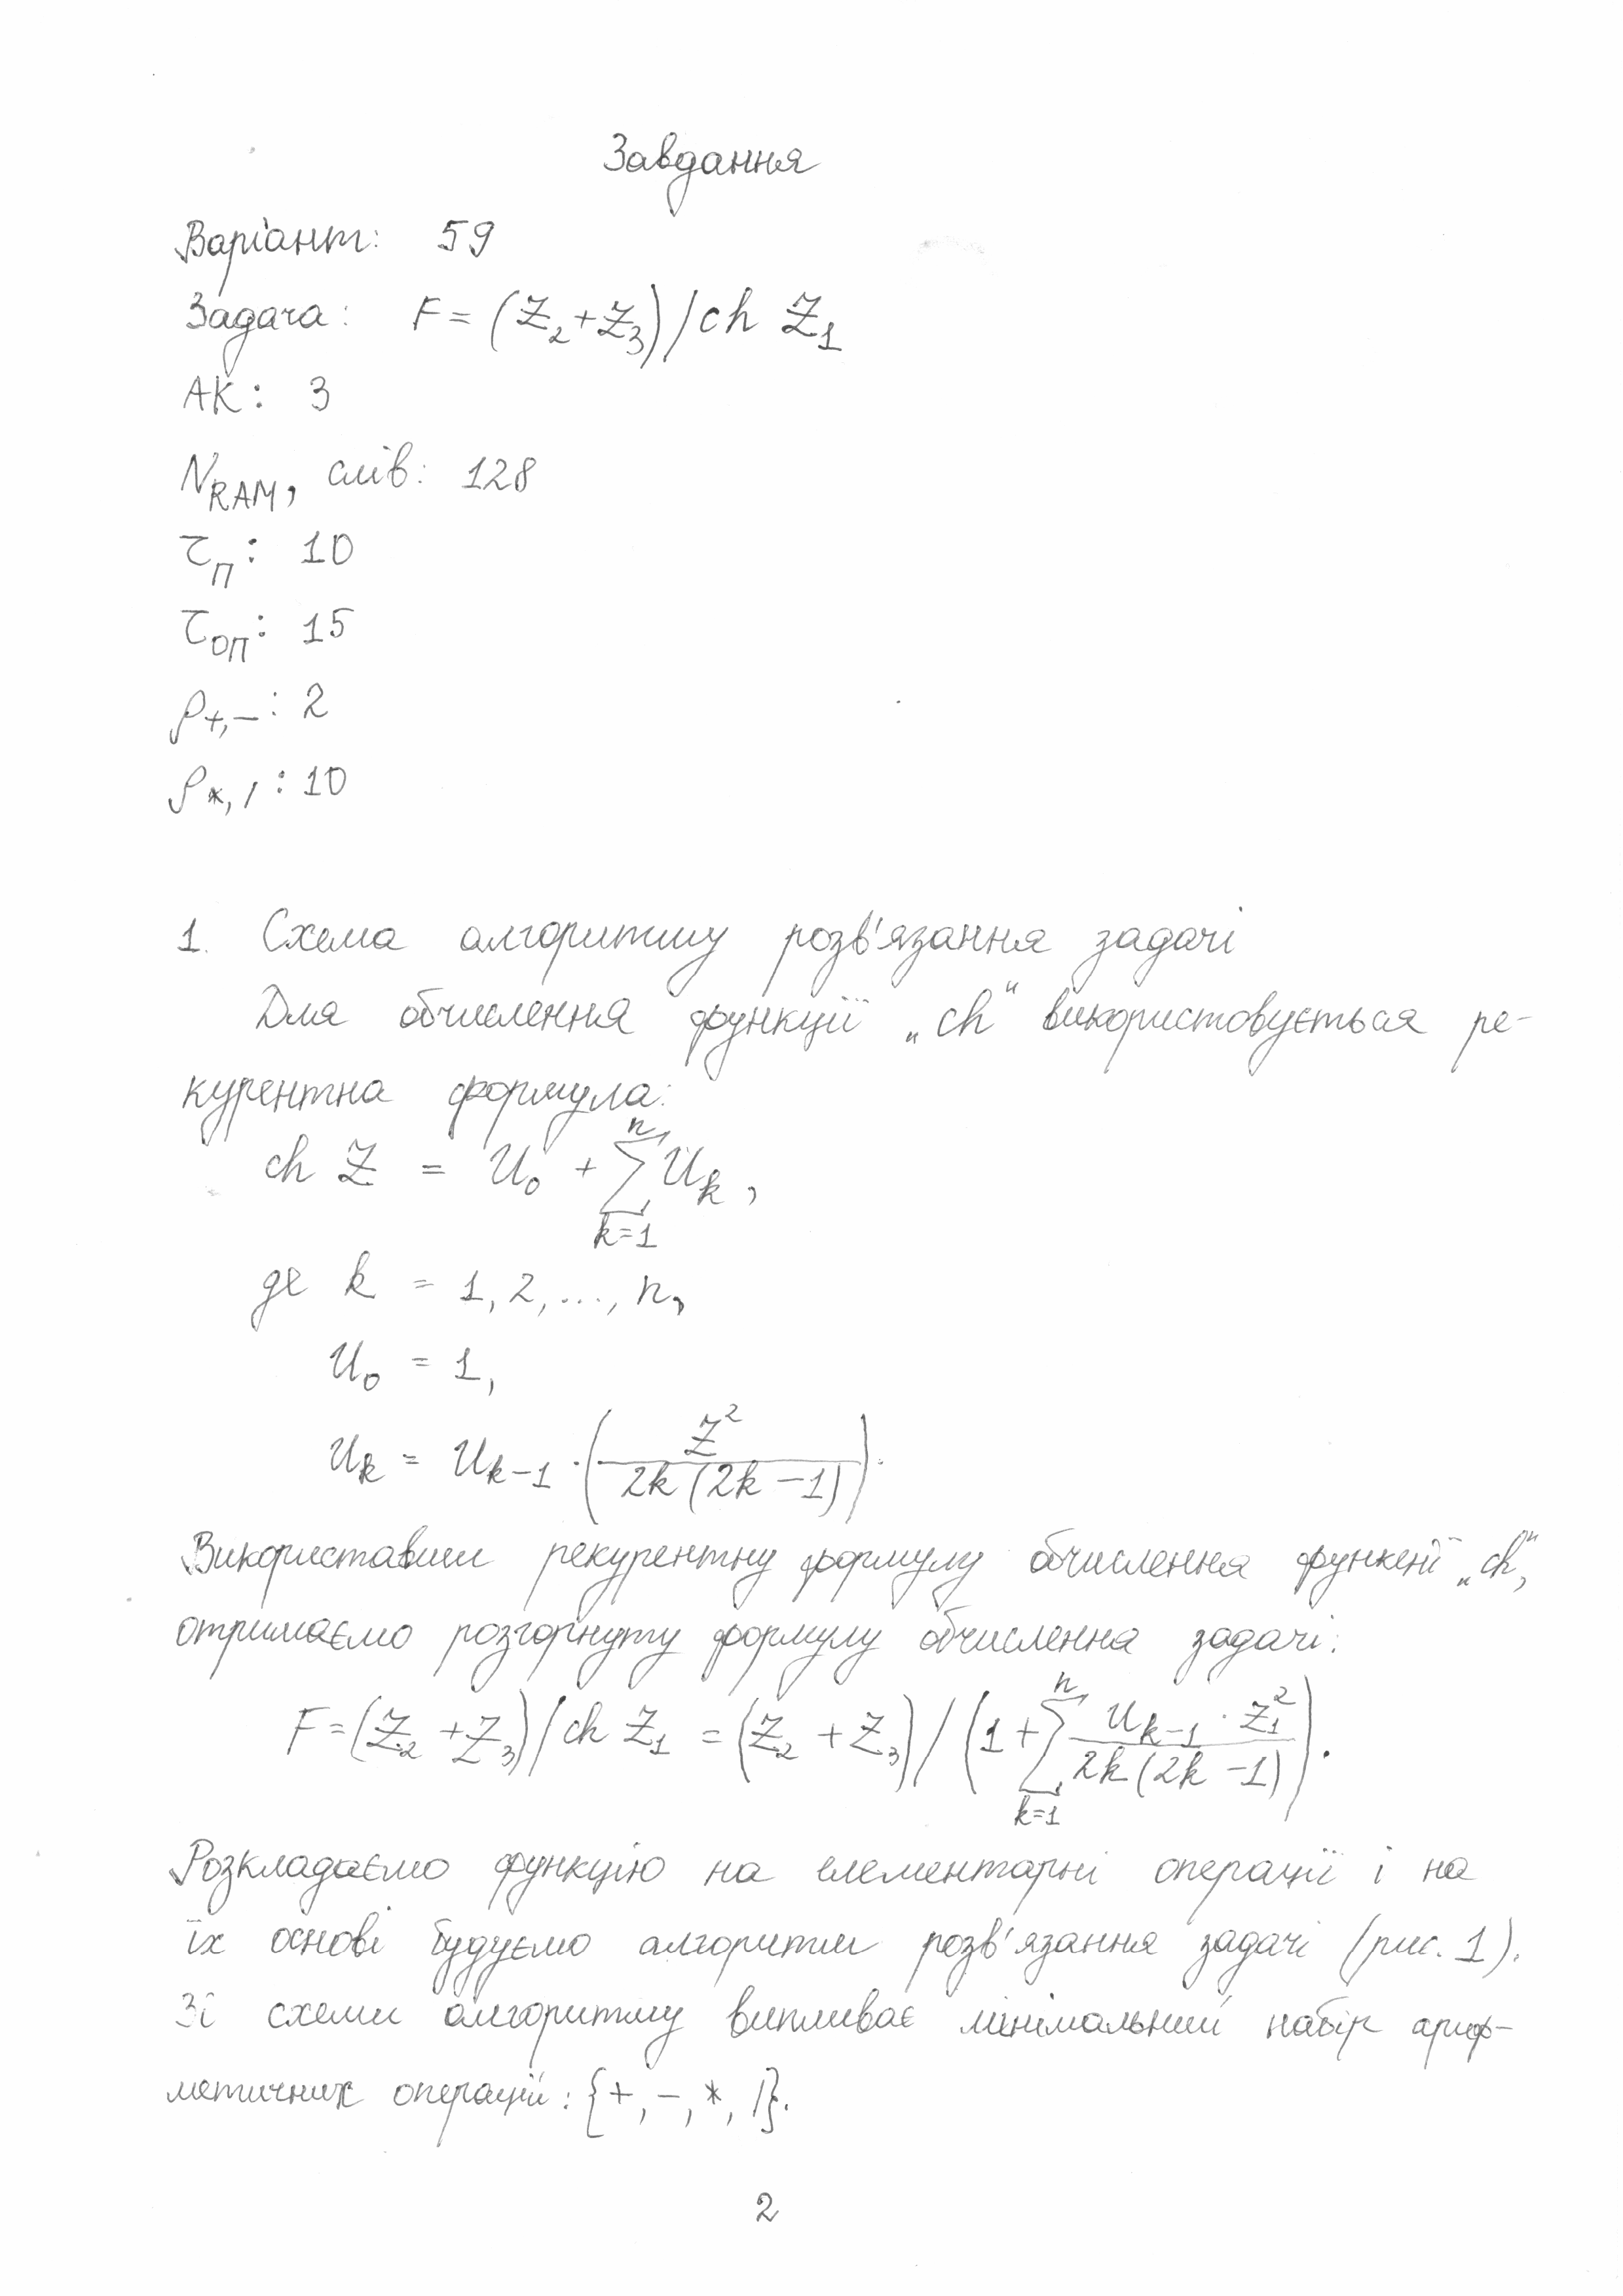 Завдання
Варіант: 59
Задача: F = (Z₂+Z₃)/ch Z₁
АК: 3
N_RAM, слів: 128
τ_П: 10
τ_ОП: 15
ρ_+,−: 2
ρ_*,/: 10
1. Схема алгоритму розв'язання задачі
Для обчислення функції „ch“ використовується ре-
курентна формула:
ch Z = U₀ + ∑_{k=1}^{n} U_k,
де k = 1, 2, ..., n,
U₀ = 1,
U_k = U_{k−1} · (Z² / 2k(2k−1)).
Використавши рекурентну формулу обчислення функції „ch“,
отримаємо розгорнуту формулу обчислення задачі:
F = (Z₂+Z₃)/ch Z₁ = (Z₂+Z₃)/(1+∑_{k=1}^{n} U_{k−1}·Z₁² / 2k(2k−1)).
Розкладаємо функцію на елементарні операції і на
їх основі будуємо алгоритм розв'язання задачі (рис. 1).
Зі схеми алгоритму випливає мінімальний набір ариф-
метичних операцій: {+, −, *, /}.
2